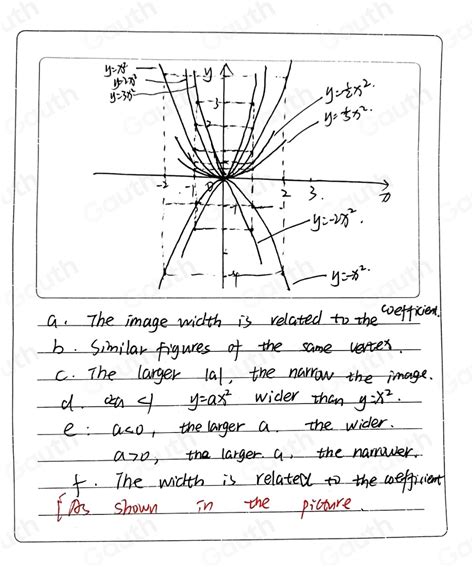 y=x²
y=2x²
y=3x²
y
3
2
y=½x².
y=⅓x².
-2 -1 0 2 3. x
-1
y=-2x².
-4
y=-x².
a. The image width is related to the coefficient.
b. Similar figures of the same vertex.
c. The larger |a|, the narrow the image.
d. <1 y=ax² wider than y=x².
e: a<0, the larger a. the wider.
a>0, the larger. a, the narrower.
f. The width is related to the coefficient
[As shown in the picture.
Gauth